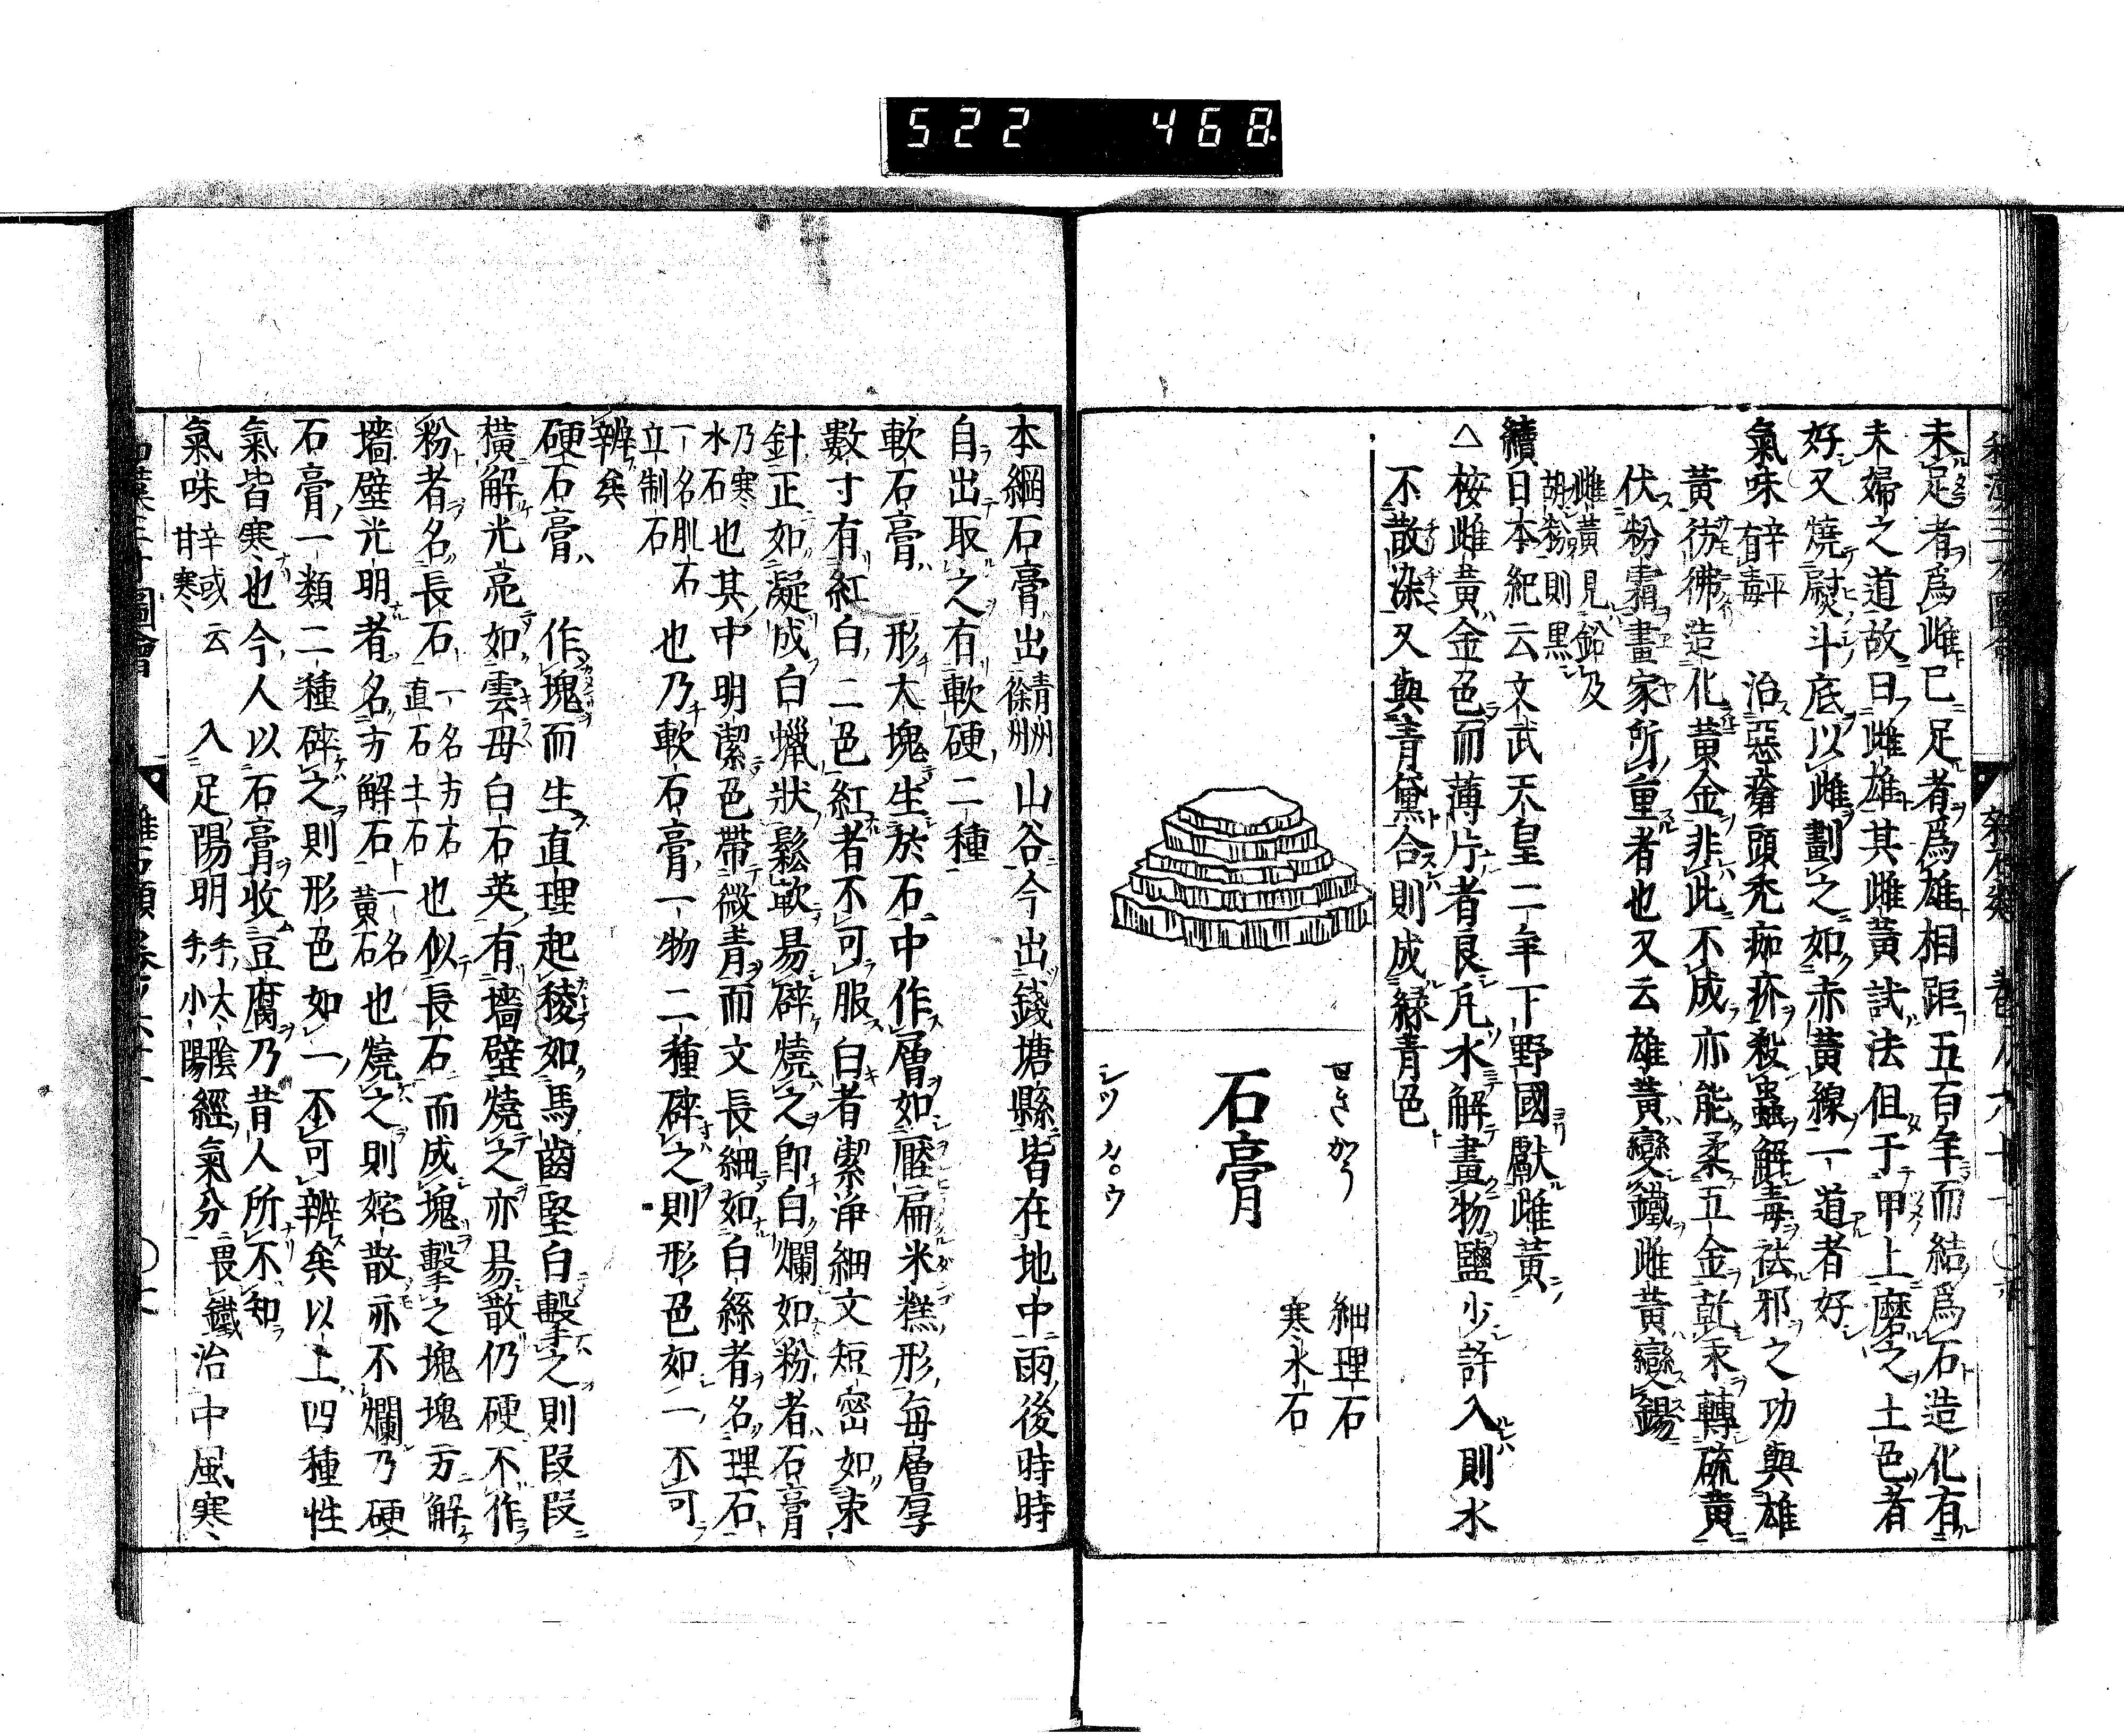 522 468
未足者爲雌已足者爲雄相距五百年而結爲石造化有
夫婦之道故曰雌雄其雌黃試法但于甲上磨之土色者
好又燒熨斗底以雌劃之如赤黃線一道者好
氣味 辛平有毒 治惡瘡頭禿痂疥殺蟲解毒祛邪之功與雄
黃彷彿造化黃金非此不成亦能柔五金乾汞轉硫黃
伏粉霜畫家所重者也又云雄黃變鐵雌黃變錫
雌黃見鉛及
胡粉則黑
續日本紀云文武天皇二年下野國獻雌黃
△桉雌黃金色而薄片者良凡水解畫物鹽少許入則水
不散染又與青黛合則成綠青色
せきかう
石膏
細理石
寒水石
本綱石膏出青州徐州山谷今出錢塘縣皆在地中雨後時時
自出取之有軟硬二種
軟石膏 形大塊生於石中作層如壓扁米糕形每層厚
數寸有紅白二色紅者不可服白者潔淨細文短密如束
針正如凝成白蠟狀鬆軟易碎燒之即白爛如粉者石膏
乃寒水石也其中明潔色帶微青而文長細如白絲者名理石
一名肌石立制石也乃軟石膏一物二種碎之則形色如一不可
辨矣
硬石膏 作塊而生直理起稜如馬齒堅白擊之則段段
橫解光亮如雲母白石英有墻壁燒之亦易散仍硬不作
粉者名長石 一名方石直石土石 也似長石而成塊擊之塊塊方解
墻壁光明者名方解石 一名黃石 也燒之則姹散亦不爛乃硬
石膏一類二種碎之則形色如一不可辨矣以上四種性
氣皆寒也今人以石膏收豆腐乃昔人所不知
氣味 辛或云甘寒 入足陽明手太陰手小陽經氣分畏鐵治中風寒